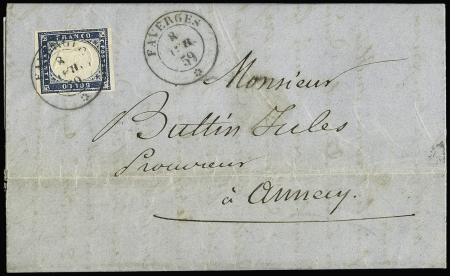 FRANCO
FAVERGES
8
59
FAVERGES
8
59
Monsieur
Buttin Jules
Procureur
à Annecy.